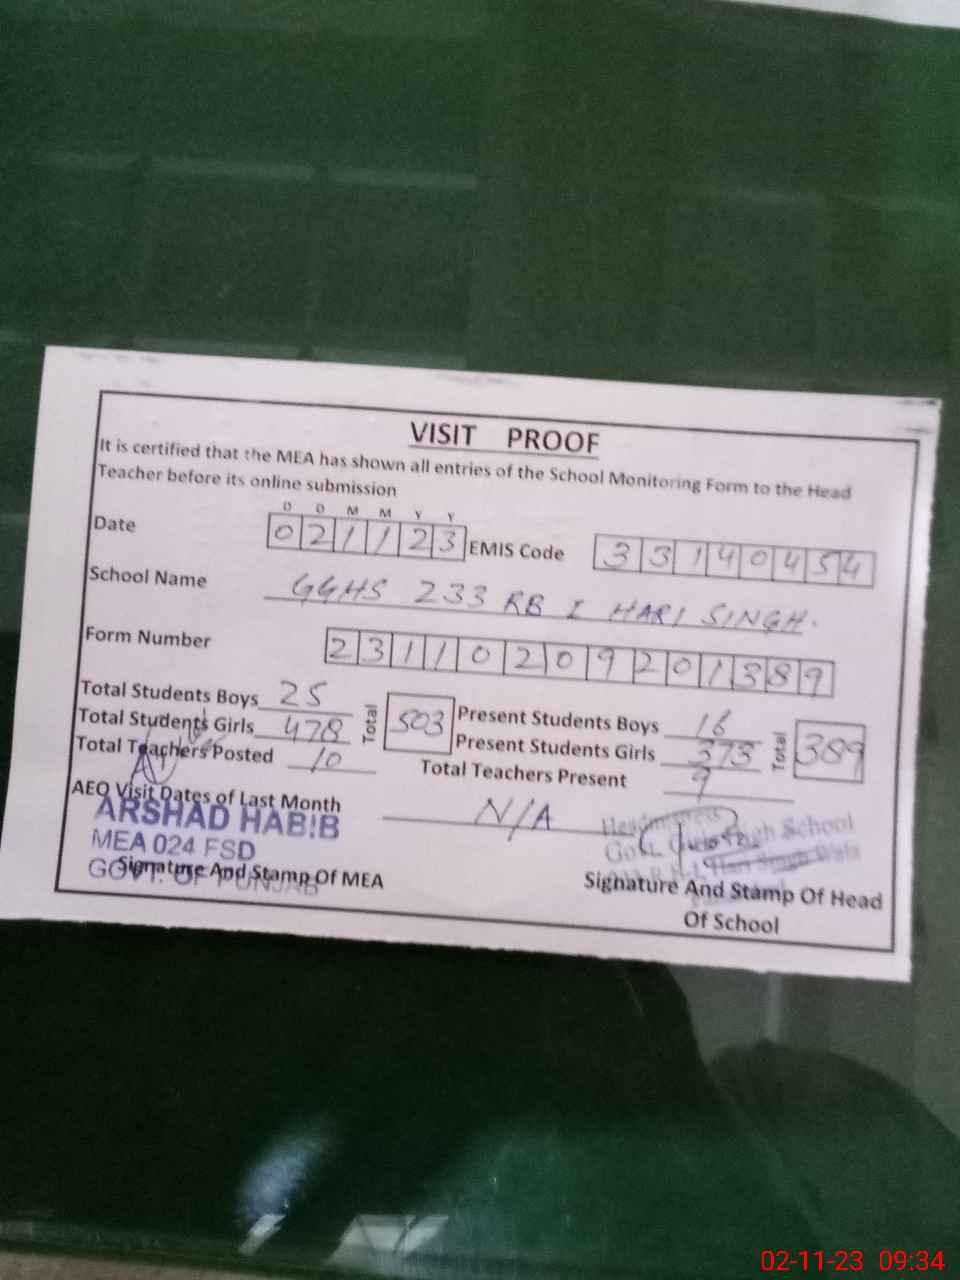 VISIT PROOF
It is certified that the MEA has shown all entries of the School Monitoring Form to the Head
Teacher before its online submission
D D M M Y Y
Date 021123 EMIS Code 33140454
School Name GGHS 233 RB I HARI SINGH.
Form Number 23110209201389
Total Students Boys 25 Total 503 Present Students Boys 16 Total 389
Total Students Girls 478 Present Students Girls 373
Total Teachers Posted 10 Total Teachers Present 9
AEO Visit Dates of Last Month N/A
ARSHAD HABIB
MEA 024 FSD
GOVT. OF PUNJAB
Signature And Stamp Of MEA
Headmistress
Govt. Girls High School
Hari Singh Wala
Signature And Stamp Of Head
Of School
02-11-23 09:34